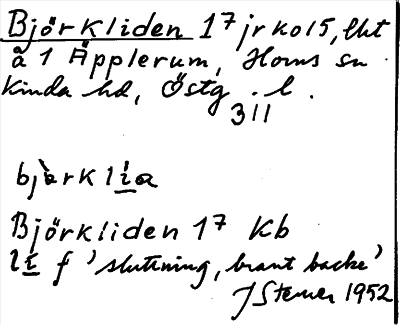 Björkliden 1⁷ jrko15, lht
å 1 Äpplerum, Horns sn
Kinda hd, Östg. l.
311
bjàrklia
Björkliden 1⁷ Kb
li f 'sluttning, brant backe'
J Stemer 1952